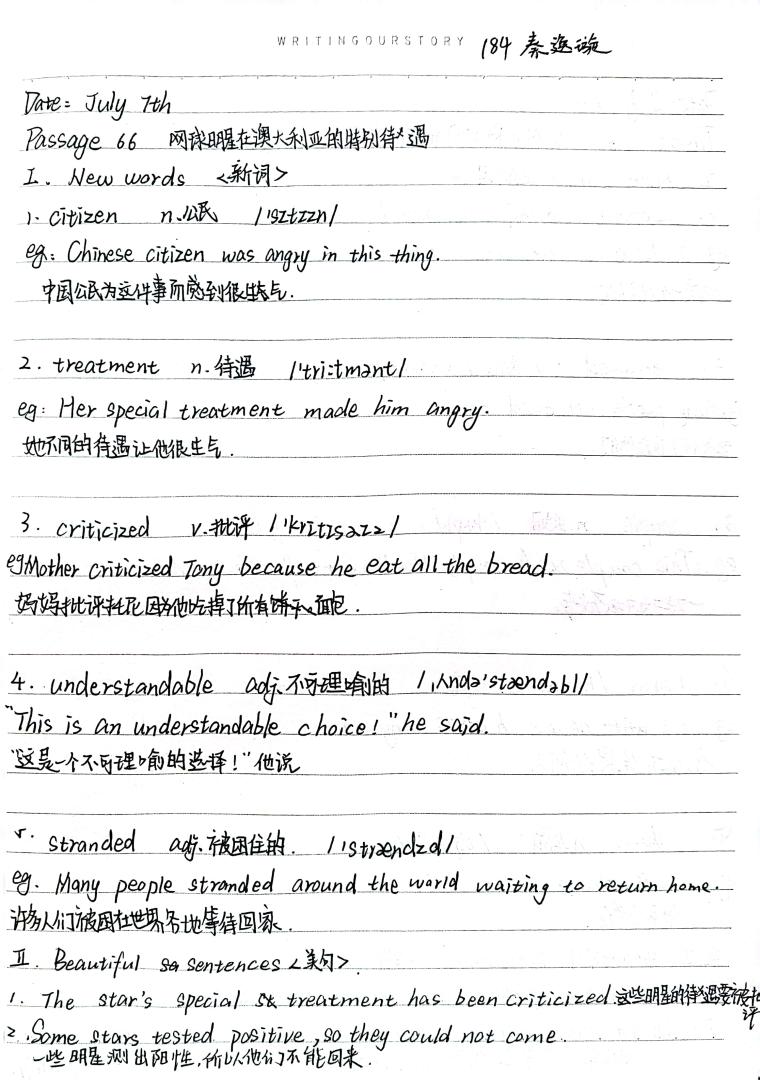 WRITINGOURSTORY 184 秦逸璇
Date: July 7th
Passage 66 网球明星在澳大利亚的特别待遇
I. New words <新词>
1. citizen n.公民 /'sɪtɪzn/
eg: Chinese citizen was angry in this thing.
中国公民为这件事而感到很生气.
2. treatment n.待遇 /'tri:tmənt/
eg: Her special treatment made him angry.
她不同的待遇让他很生气.
3. criticized v.批评 /'krɪtɪsaɪz/
eg Mother criticized Tony because he eat all the bread.
妈妈批评托尼因为他吃掉了所有面包.
4. understandable adj.不可理喻的 /ˌʌndə'stændəbl/
"This is an understandable choice!" he said.
"这是一个不可理喻的选择!" 他说
5. stranded adj.被困住的. /'strændɪd/
eg. Many people stranded around the world waiting to return home.
许多人们被困在世界各地等待回家.
II. Beautiful sentences <美句>
1. The star's special treatment has been criticized.这些明星的待遇要被批评
2. Some stars tested positive, so they could not come.
一些明星测出阳性,所以他们不能回来.